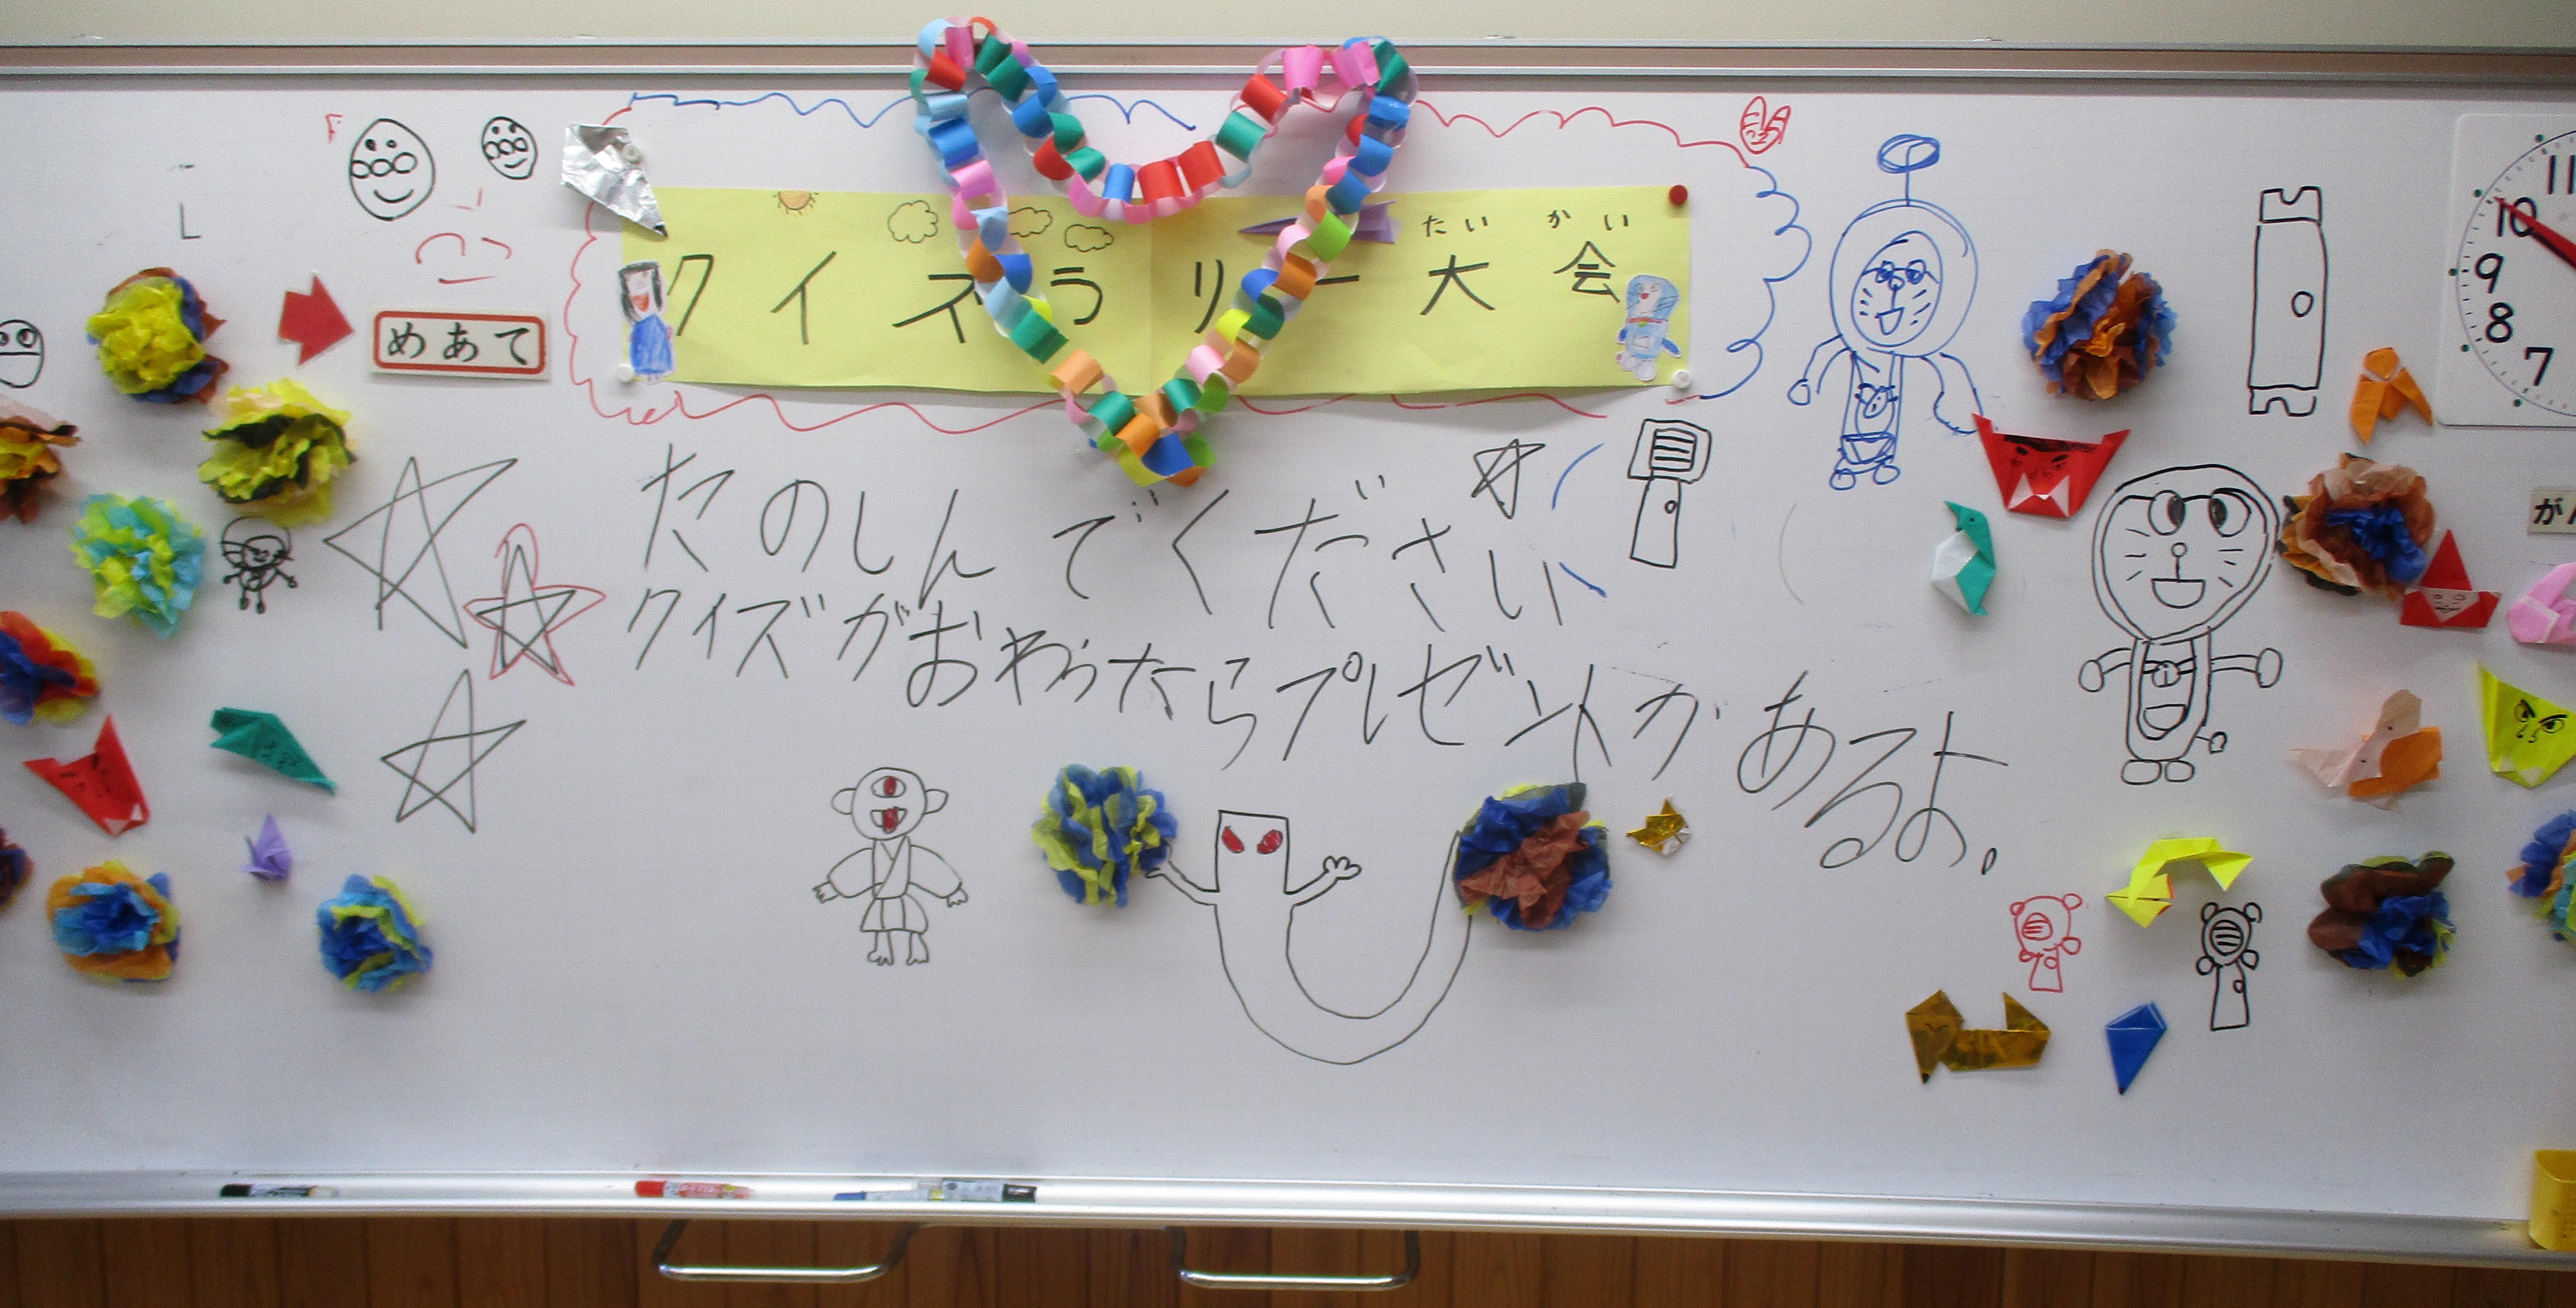 たい かい
クイズラリー大会
めあて
たのしんでください
クイズがおわったらプレゼントがあるよ。
11
10
9
8
7
が